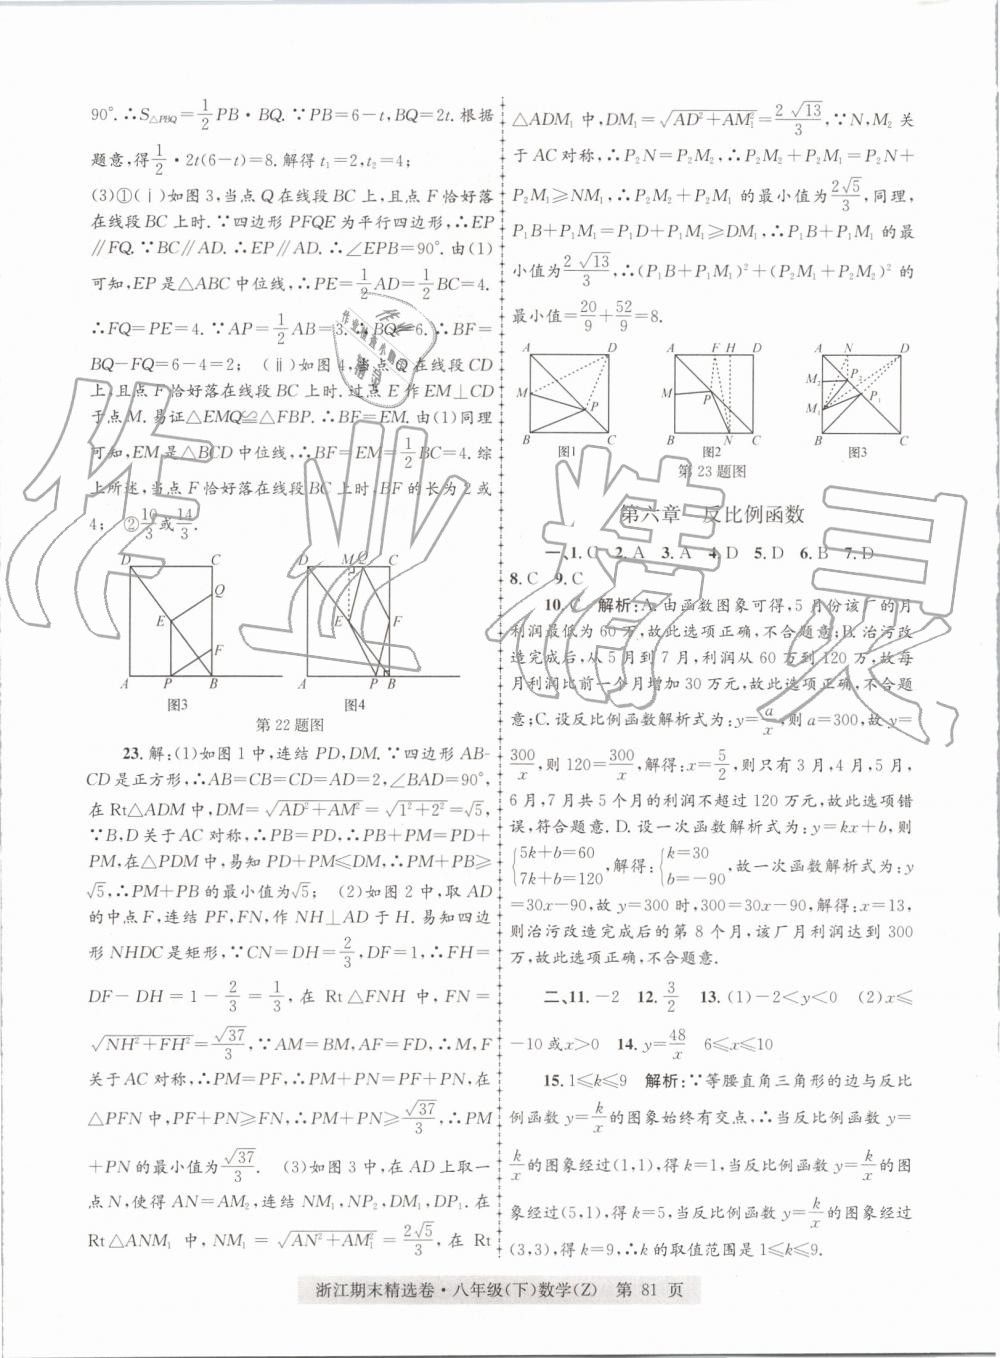 90°.∴S△PBQ=1/2 PB·BQ.∵PB=6-t,BQ=2t.根据
题意,得1/2·2t(6-t)=8.解得t₁=2,t₂=4;
(3)①(ⅰ)如图3,当点Q在线段BC上,且点F恰好落
在线段BC上时.∵四边形PFQE为平行四边形,∴EP
∥FQ.∵BC∥AD.∴EP∥AD.∴∠EPB=90°.由(1)
可知,EP是△ABC中位线,∴PE=1/2 AD=1/2 BC=4.
∴FQ=PE=4.∵AP=1/2 AB=3.∴BQ=6.∴BF=
BQ-FQ=6-4=2;(ⅱ)如图4,当点Q在线段CD
上,且点F恰好落在线段BC上时.过点E作EM⊥CD
于点M.易证△EMQ≌△FBP.∴BF=EM.由(1)同理
可知,EM是△BCD中位线,∴BF=EM=1/2 BC=4.综
上所述,当点F恰好落在线段BC上时,BF的长为2或
4;②10/3或14/3.
D C Q E F A P B
图3
D M Q C E F A P B
图4
第22题图
23.解:(1)如图1中,连结PD,DM.∵四边形AB-
CD是正方形,∴AB=CB=CD=AD=2,∠BAD=90°,
在Rt△ADM中,DM=√(AD²+AM²)=√(1²+2²)=√5,
∵B,D关于AC对称,∴PB=PD,∴PB+PM=PD+
PM,在△PDM中,易知PD+PM≤DM,∴PM+PB≥
√5,∴PM+PB的最小值为√5;(2)如图2中,取AD
的中点F,连结PF,FN,作NH⊥AD于H.易知四边
形NHDC是矩形,∵CN=DH=2/3,DF=1,∴FH=
DF-DH=1-2/3=1/3,在Rt△FNH中,FN=
√(NH²+FH²)=√37/3,∵AM=BM,AF=FD,∴M,F
关于AC对称,∴PM=PF,∴PM+PN=PF+PN,在
△PFN中,PF+PN≥FN,∴PM+PN≥√37/3,∴PM
+PN的最小值为√37/3.(3)如图3中,在AD上取一
点N,使得AN=AM₂,连结NM₁,NP₂,DM₁,DP₁.在
Rt△ANM₁中,NM₁=√(AN²+AM₁²)=2√5/3,在Rt
△ADM₁中,DM₁=√(AD²+AM₁²)=2√13/3,∵N,M₂关
于AC对称,∴P₂N=P₂M₂,∴P₂M₂+P₂M₁=P₂N+
P₂M₁≥NM₁,∴P₂M₂+P₂M₁的最小值为2√5/3,同理,
P₁B+P₁M₁=P₁D+P₁M₁≥DM₁,∴P₁B+P₁M₁的最
小值为2√13/3,∴(P₁B+P₁M₁)²+(P₂M₁+P₂M₂)²的
最小值=20/9+52/9=8.
A D M P B C
图1
A F H D M P B N C
图2
A N D M₂ P₂ M₁ P₁ B C
图3
第23题图
第六章 反比例函数
一、1.C 2.A 3.A 4.D 5.D 6.B 7.D
8.C 9.C
10.C 解析:A.由函数图象可得,5月份该厂的月
利润最低为60万,故此选项正确,不合题意;B.治污改
造完成后,从5月到7月,利润从60万到120万,故每
月利润比前一个月增加30万元,故此选项正确,不合题
意;C.设反比例函数解析式为:y=a/x,则a=300,故y=
300/x,则120=300/x,解得:x=5/2,则只有3月,4月,5月,
6月,7月共5个月的利润不超过120万元,故此选项错
误,符合题意.D.设一次函数解析式为:y=kx+b,则
{5k+b=60 7k+b=120,解得:{k=30 b=-90,故一次函数解析式为:y
=30x-90,故y=300时,300=30x-90,解得:x=13,
则治污改造完成后的第8个月,该厂月利润达到300
万,故此选项正确,不合题意.
二、11.-2 12.3/2 13.(1)-2<y<0 (2)x≤
-10或x>0 14.y=48/x 6≤x≤10
15.1≤k≤9 解析:∵等腰直角三角形的边与反比
例函数y=k/x的图象始终有交点,∴当反比例函数y=
k/x的图象经过(1,1),得k=1,当反比例函数y=k/x的图
象经过(5,1),得k=5,当反比例函数y=k/x的图象经过
(3,3),得k=9,∴k的取值范围是1≤k≤9.
浙江期末精选卷·八年级(下)数学(Z) 第81页
作业精灵